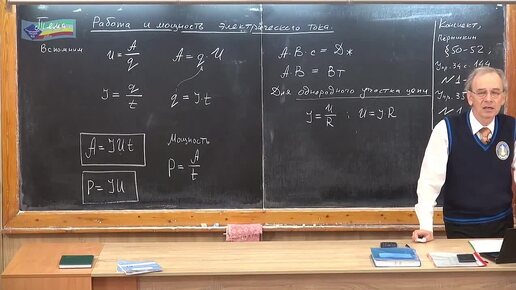 Тема
Работа и мощность электрического тока.
Вспомним
U = A/q
A = q U
J = q/t
q = J t
A = J U t
P = J U
Мощность
P = A/t
А·В·с = Дж
А·В = Вт
Для однородного участка цепи
J = U/R ; U = J R
Конспект,
Пёрышкин
§50-52,
Упр. 34 с. 144
N 1
Упр. 35
N 1